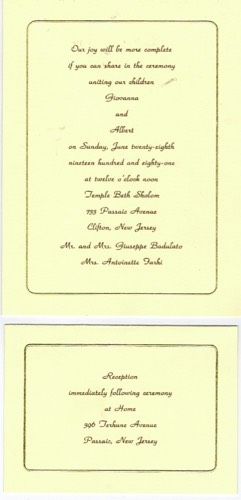 Our joy will be more complete
if you can share in the ceremony
uniting our children
Giovanna
and
Albert
on Sunday, June twenty-eighth
nineteen hundred and eighty-one
at twelve o'clock noon
Temple Beth Sholom
733 Passaic Avenue
Clifton, New Jersey
Mr. and Mrs. Giuseppe Badalato
Mrs. Antoinette Farhi
Reception
immediately following ceremony
at Home
396 Terhune Avenue
Passaic, New Jersey